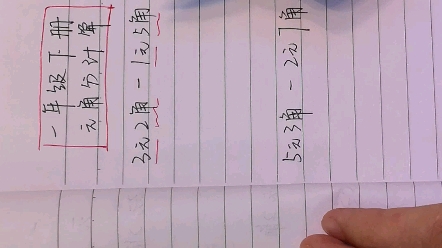 一年级下册
元角分计算
3元2角 - 1元5角
5元3角 - 2元1角